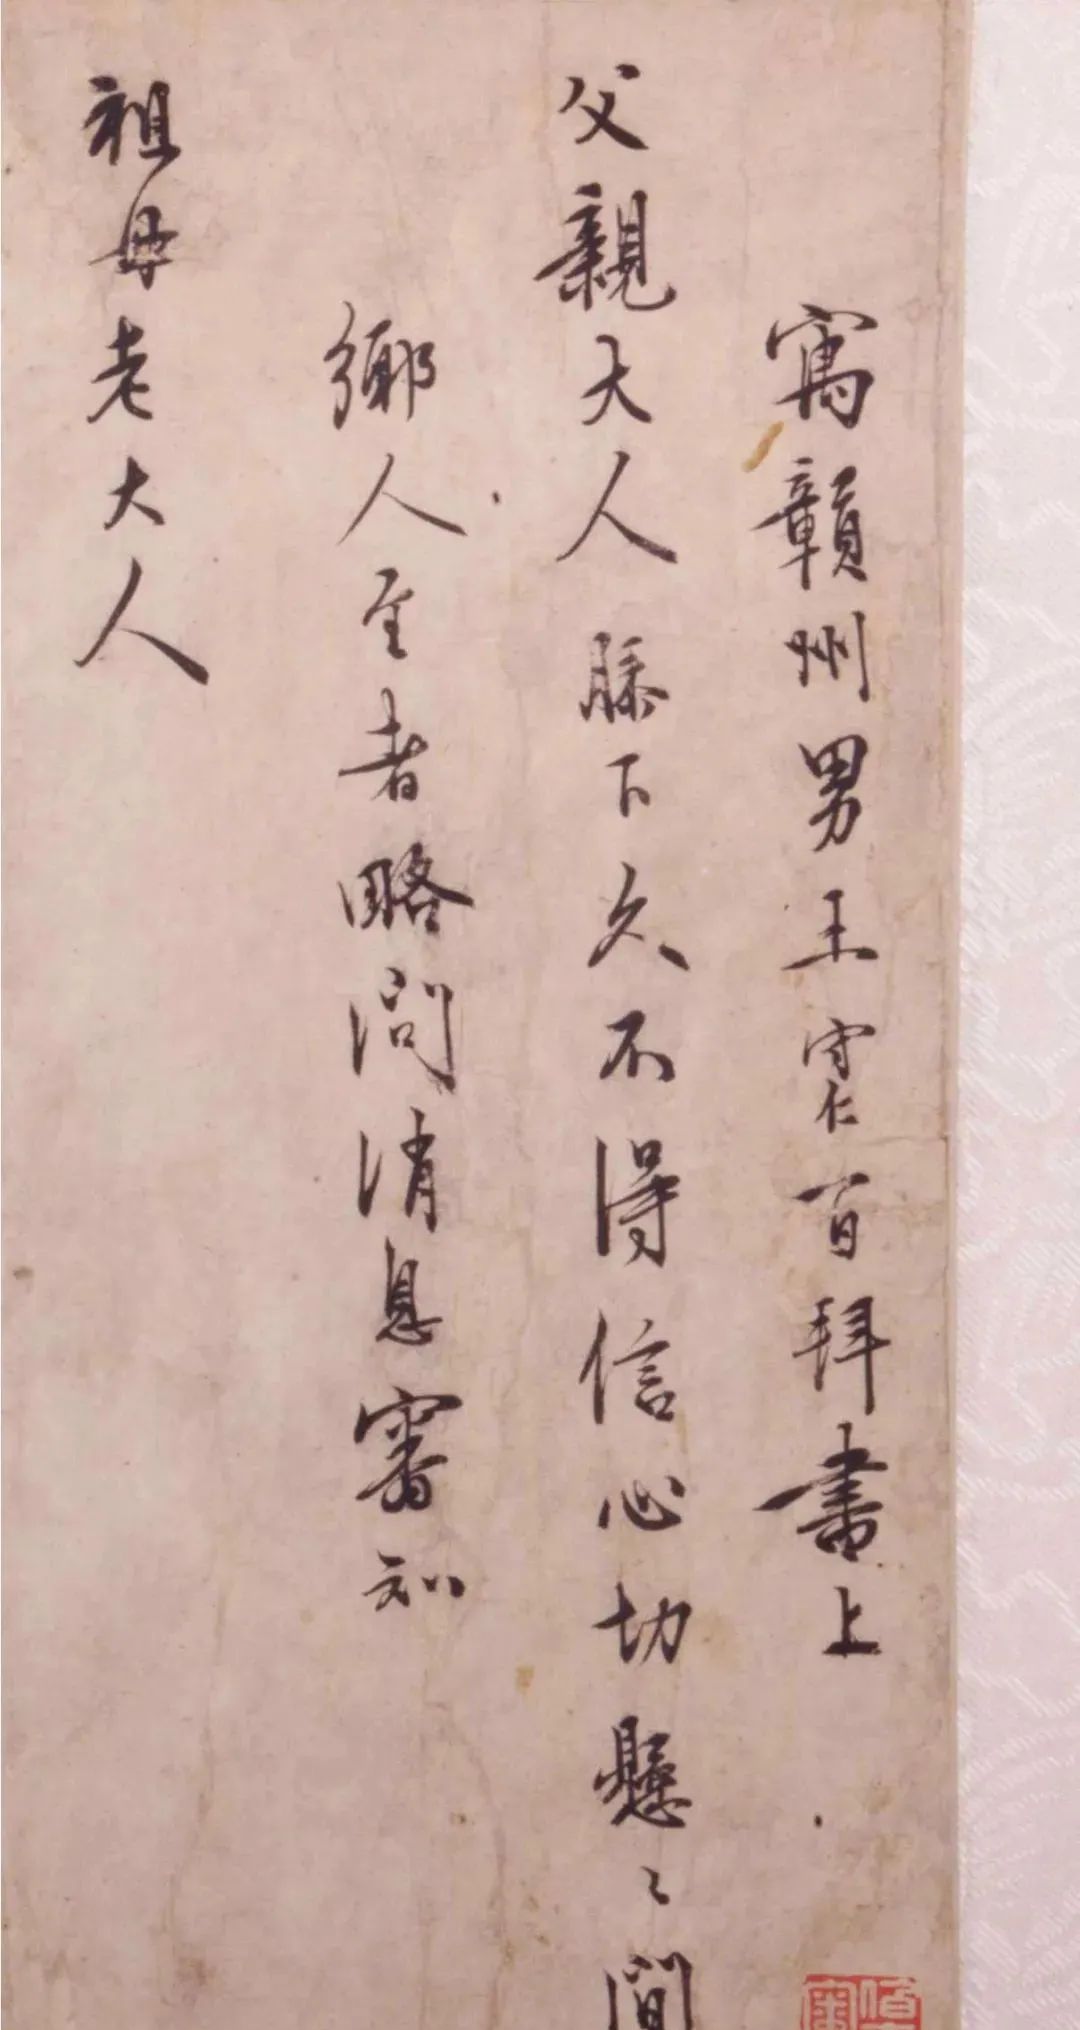 寓贛州男王守仁百拜書上
父親大人膝下久不得信心切懸〻間
鄉人至者略問消息審知
祖母老大人